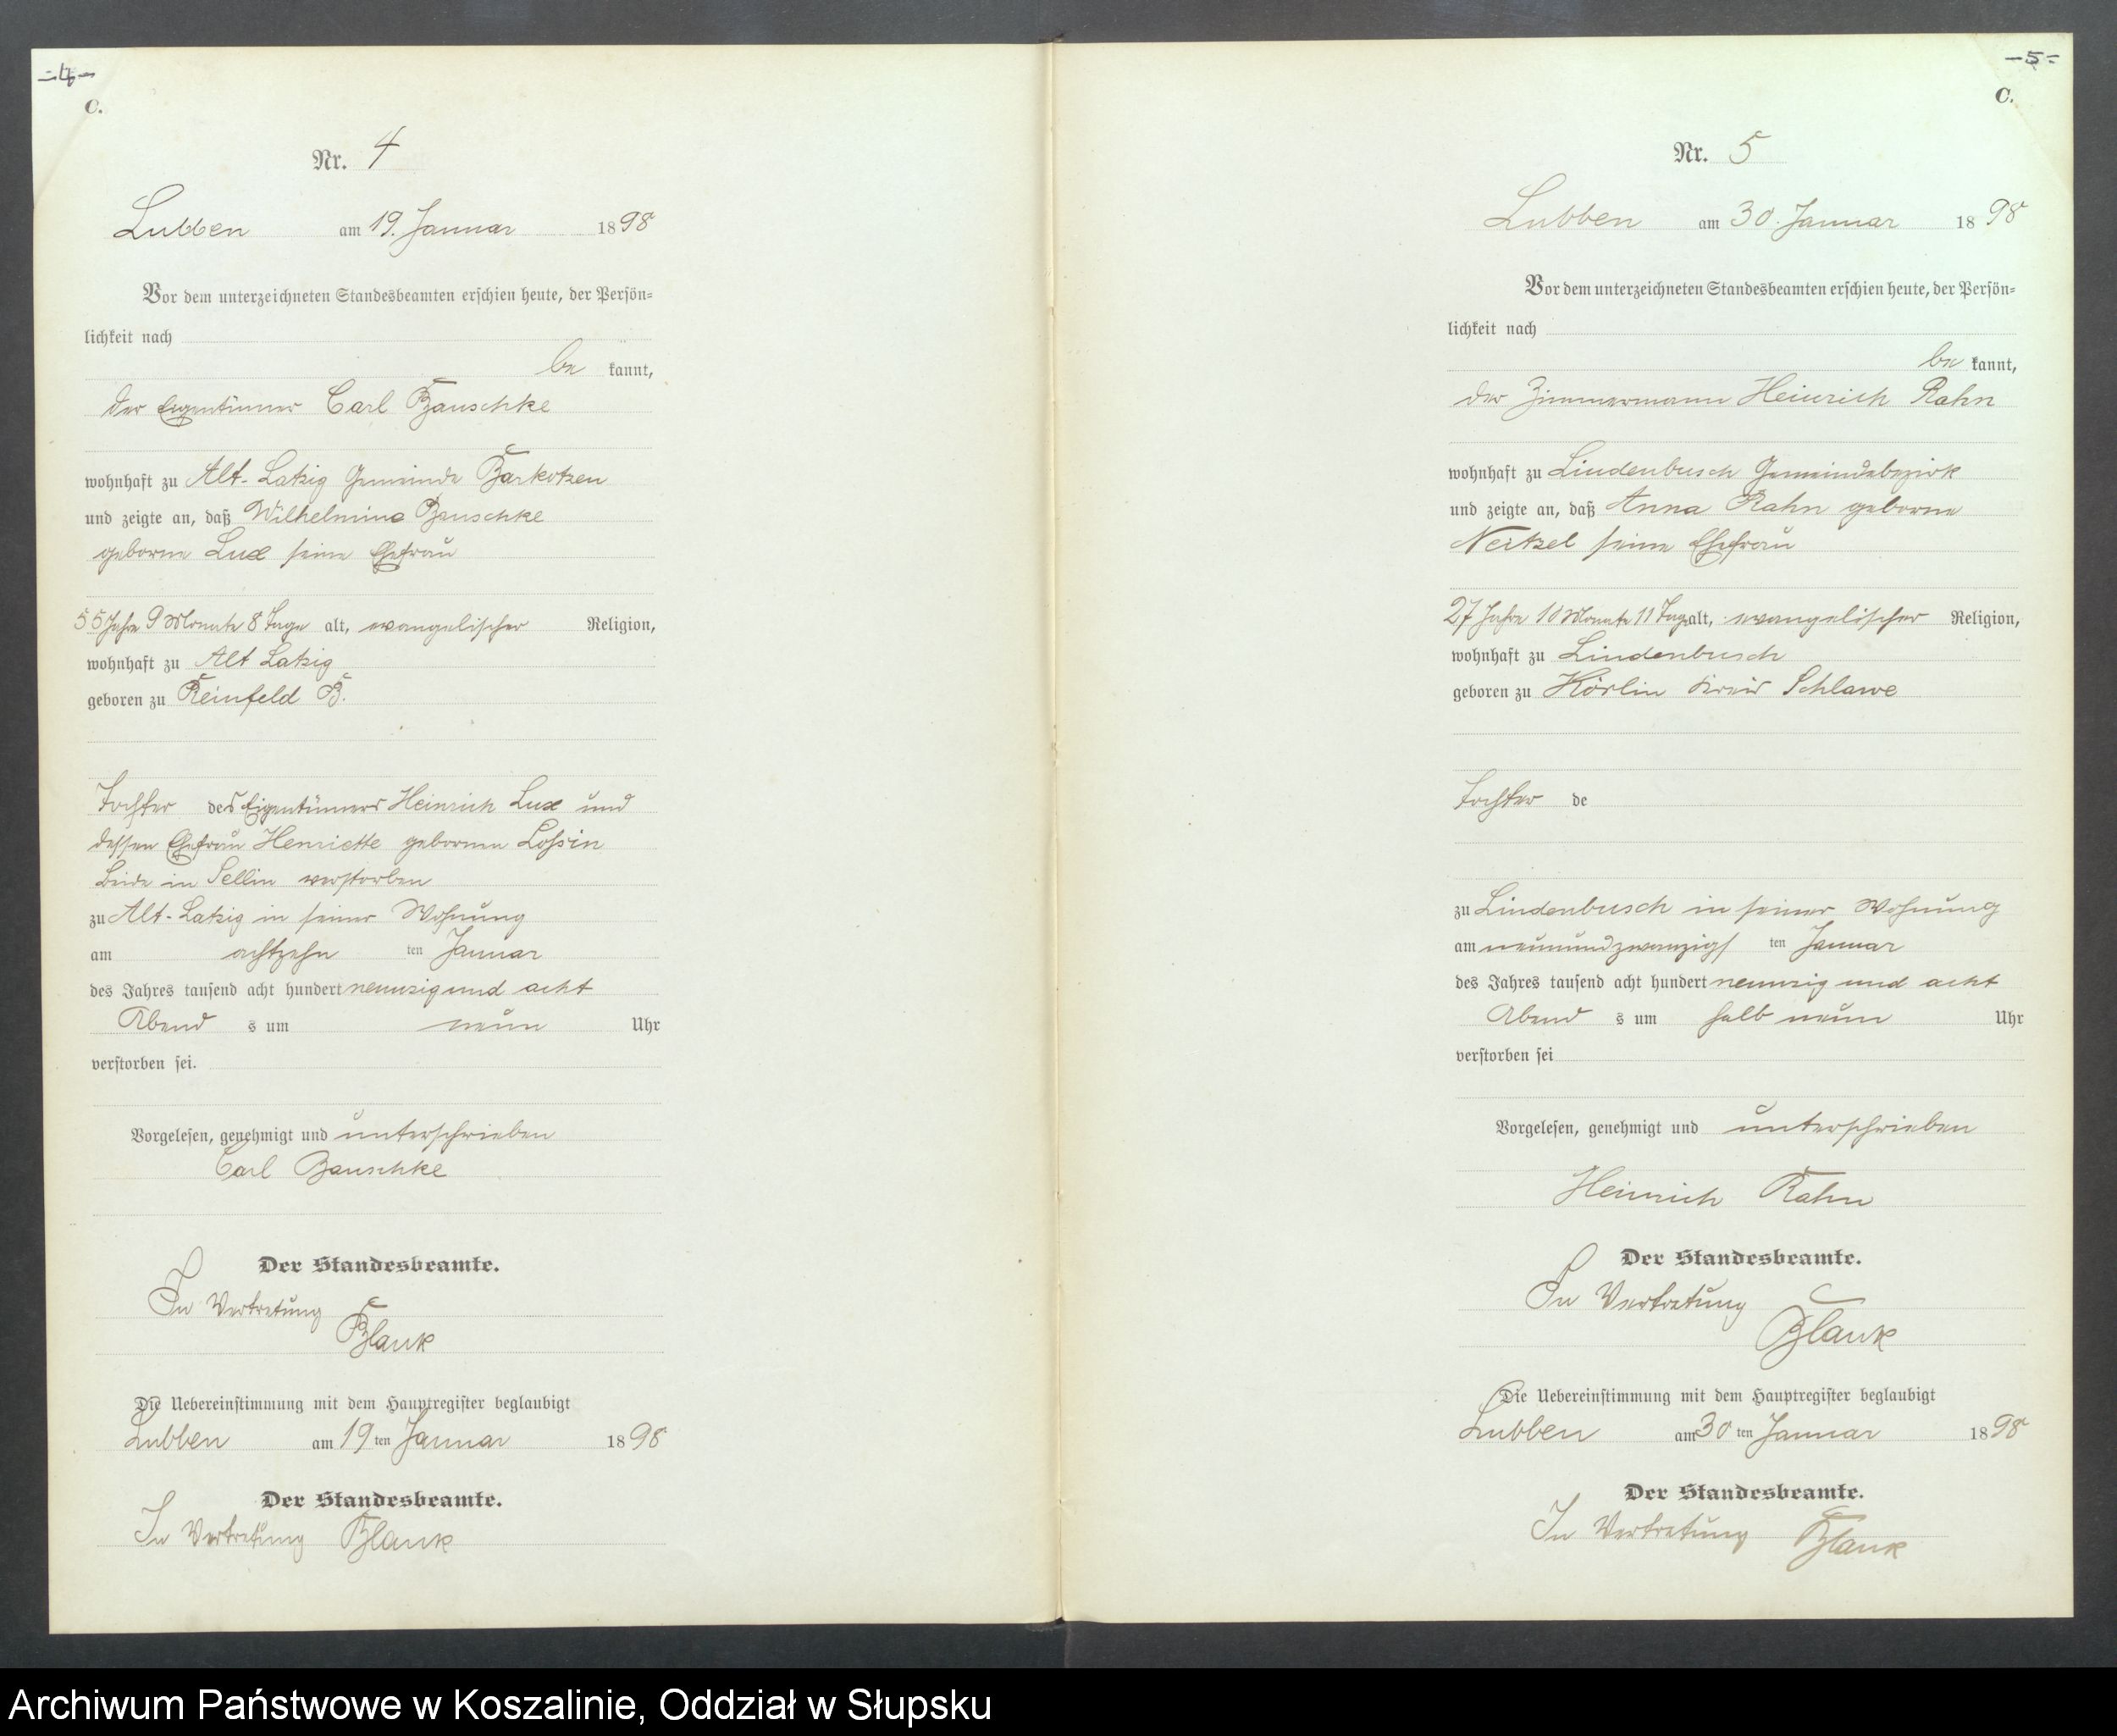 -4-
C.
Nr. 4
Lubben am 19. Januar 1898
Vor dem unterzeichneten Standesbeamten erschien heute, der Persön=
lichkeit nach
be kannt,
der Eigentümer Carl Bauschke
wohnhaft zu Alt-Latzig Gemeinde Barkotzen
und zeigte an, daß Wilhelmine Bauschke
geborne Lux seine Ehefrau
55 Jahre 9 Monate 8 Tage alt, evangelischer Religion,
wohnhaft zu Alt Latzig
geboren zu Reinfeld B.
Tochter des Eigentümers Heinrich Lux und
dessen Ehefrau Henriette geborne Lossin
beide in Sellin verstorben
zu Alt-Latzig in seiner Wohnung
am achtzehn ten Januar
des Jahres tausend acht hundert neunzig und acht
Abend s um neun Uhr
verstorben sei.
Vorgelesen, genehmigt und unterschrieben
Carl Bauschke
Der Standesbeamte.
In Vertretung
Blank
Die Uebereinstimmung mit dem Hauptregister beglaubigt
Lubben am 19 ten Januar 1898
Der Standesbeamte.
In Vertretung Blank
-5-
C.
Nr. 5
Lubben am 30. Januar 1898
Vor dem unterzeichneten Standesbeamten erschien heute, der Persön=
lichkeit nach
be kannt,
der Zimmermann Heinrich Rahn
wohnhaft zu Lindenbusch Gemeindebezirk
und zeigte an, daß Anna Rahn geborne
Neitzel seine Ehefrau
27 Jahre 10 Monate 11 Tage alt, evangelischer Religion,
wohnhaft zu Lindenbusch
geboren zu Körlin Kreis Schlawe
Tochter de
zu Lindenbusch in seiner Wohnung
am neunundzwanzigs ten Januar
des Jahres tausend acht hundert neunzig und acht
Abend s um halb neun Uhr
verstorben sei
Vorgelesen, genehmigt und unterschrieben
Heinrich Rahn
Der Standesbeamte.
In Vertretung
Blank
Die Uebereinstimmung mit dem Hauptregister beglaubigt
Lubben am 30 ten Januar 1898
Der Standesbeamte.
In Vertretung Blank
Archiwum Państwowe w Koszalinie, Oddział w Słupsku